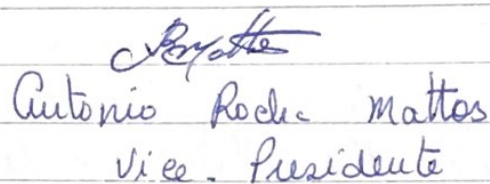 Antonio Rocha Mattos
Vice-Presidente